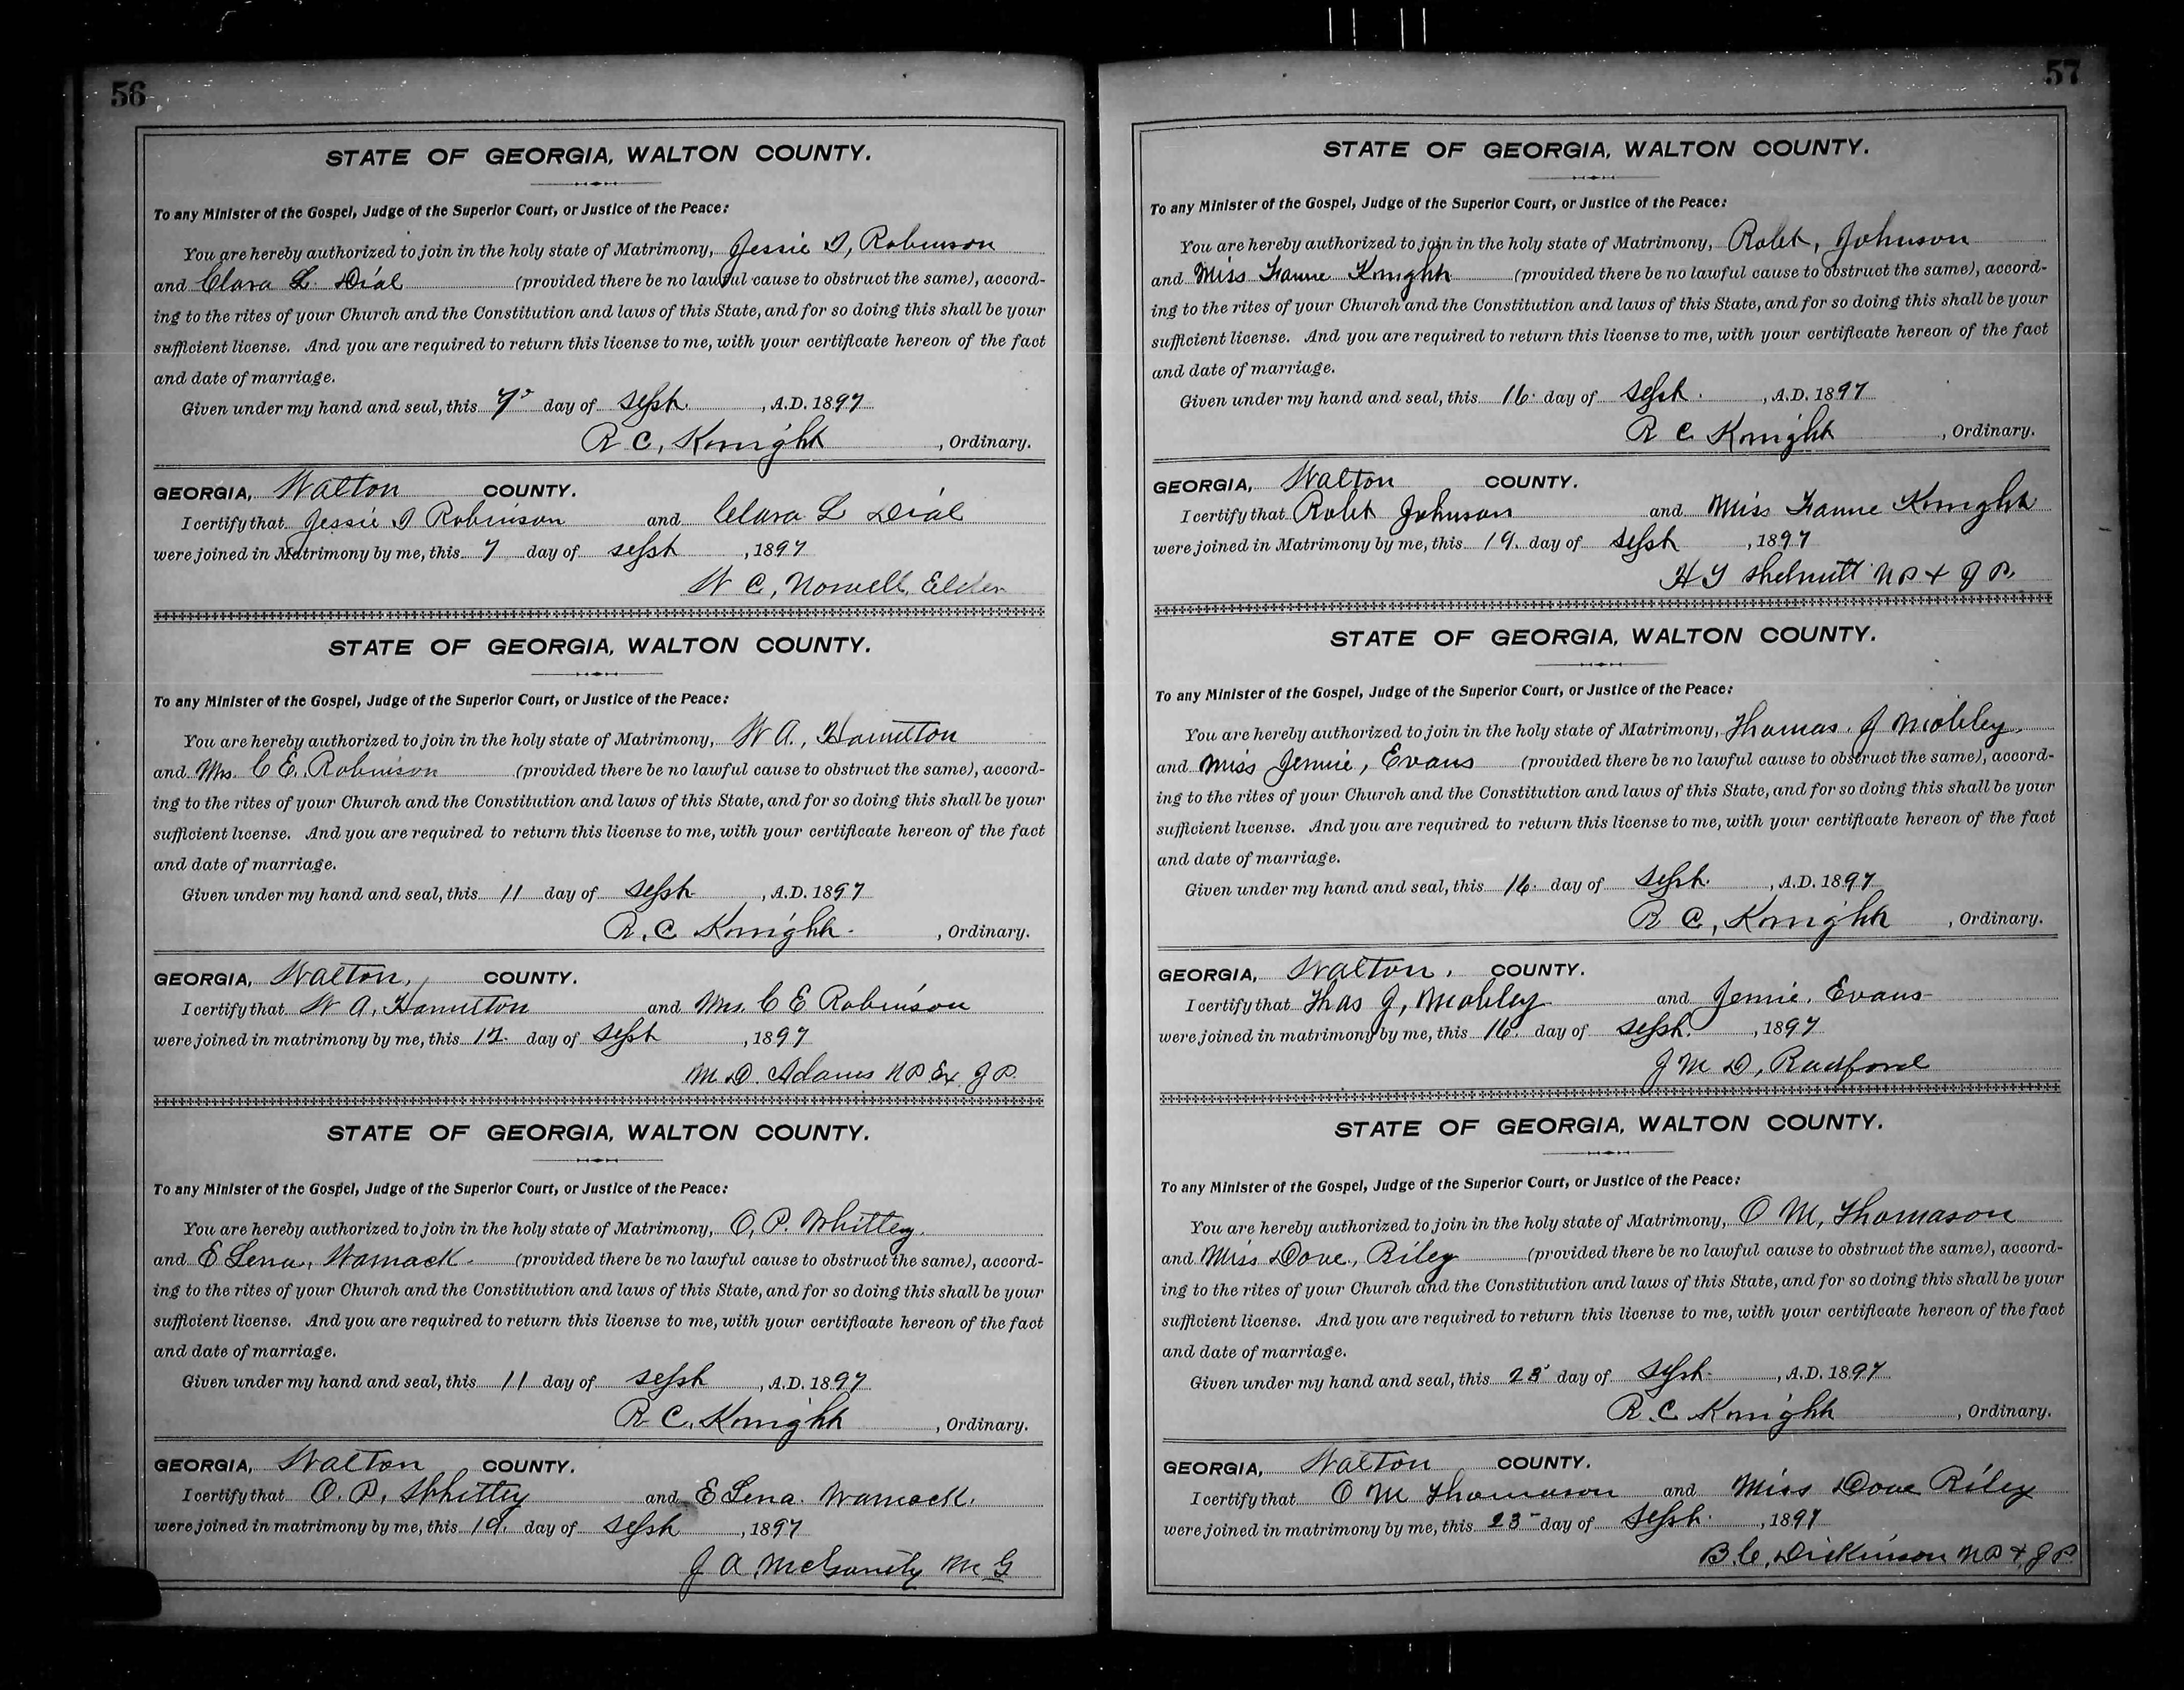 56
STATE OF GEORGIA, WALTON COUNTY.
To any Minister of the Gospel, Judge of the Superior Court, or Justice of the Peace:
You are hereby authorized to join in the holy state of Matrimony, Jessie I, Robinson
and Clara L. Dial (provided there be no lawful cause to obstruct the same), accord-
ing to the rites of your Church and the Constitution and laws of this State, and for so doing this shall be your
sufficient license. And you are required to return this license to me, with your certificate hereon of the fact
and date of marriage.
Given under my hand and seal, this 7" day of Sept. , A.D. 1897
R C, Knight , Ordinary.
GEORGIA, Walton COUNTY.
I certify that Jessie I Robinson and Clara L Dial
were joined in Matrimony by me, this 7 day of Sept , 1897
W C, Nowell, Elder
STATE OF GEORGIA, WALTON COUNTY.
To any Minister of the Gospel, Judge of the Superior Court, or Justice of the Peace:
You are hereby authorized to join in the holy state of Matrimony, W A., Hamilton
and Mrs. C E. Robinson (provided there be no lawful cause to obstruct the same), accord-
ing to the rites of your Church and the Constitution and laws of this State, and for so doing this shall be your
sufficient license. And you are required to return this license to me, with your certificate hereon of the fact
and date of marriage.
Given under my hand and seal, this 11 day of Sept. , A.D. 1897
R. C Knight. , Ordinary.
GEORGIA, Walton, COUNTY.
I certify that W A. Hamilton and Mrs. C E Robinson
were joined in matrimony by me, this 12. day of Sept , 1897
M. D. Adams N P Ex. J P.
STATE OF GEORGIA, WALTON COUNTY.
To any Minister of the Gospel, Judge of the Superior Court, or Justice of the Peace:
You are hereby authorized to join in the holy state of Matrimony, O, P. Whitley.
and E Lena, Wamack. (provided there be no lawful cause to obstruct the same), accord-
ing to the rites of your Church and the Constitution and laws of this State, and for so doing this shall be your
sufficient license. And you are required to return this license to me, with your certificate hereon of the fact
and date of marriage.
Given under my hand and seal, this 11 day of Sept , A.D. 1897
R C. Knight , Ordinary.
GEORGIA, Walton COUNTY.
I certify that O. P. Whitley and E Lena. Wamack.
were joined in matrimony by me, this 19. day of Sept , 1897
J A McGarity M G
57
STATE OF GEORGIA, WALTON COUNTY.
To any Minister of the Gospel, Judge of the Superior Court, or Justice of the Peace:
You are hereby authorized to join in the holy state of Matrimony, Robt, Johnson
and Miss Fanne Knight (provided there be no lawful cause to obstruct the same), accord-
ing to the rites of your Church and the Constitution and laws of this State, and for so doing this shall be your
sufficient license. And you are required to return this license to me, with your certificate hereon of the fact
and date of marriage.
Given under my hand and seal, this 16. day of Sept. , A.D. 1897
R C Knight , Ordinary.
GEORGIA, Walton COUNTY.
I certify that Robt Johnson and Miss Fanne Knight
were joined in Matrimony by me, this 19. day of Sept , 1897
H Y Shelnutt N P & J P.
STATE OF GEORGIA, WALTON COUNTY.
To any Minister of the Gospel, Judge of the Superior Court, or Justice of the Peace:
You are hereby authorized to join in the holy state of Matrimony, Thomas. J Mobley.
and Miss Jennie, Evans (provided there be no lawful cause to obstruct the same), accord-
ing to the rites of your Church and the Constitution and laws of this State, and for so doing this shall be your
sufficient license. And you are required to return this license to me, with your certificate hereon of the fact
and date of marriage.
Given under my hand and seal, this 16. day of Sept. , A.D. 1897
R C, Knight , Ordinary.
GEORGIA, Walton. COUNTY.
I certify that Thos J, Mobley and Jennie. Evans
were joined in matrimony by me, this 16. day of Sept. , 1897
J M D, Radford
STATE OF GEORGIA, WALTON COUNTY.
To any Minister of the Gospel, Judge of the Superior Court, or Justice of the Peace:
You are hereby authorized to join in the holy state of Matrimony, O M, Thomason
and Miss Dove, Riley (provided there be no lawful cause to obstruct the same), accord-
ing to the rites of your Church and the Constitution and laws of this State, and for so doing this shall be your
sufficient license. And you are required to return this license to me, with your certificate hereon of the fact
and date of marriage.
Given under my hand and seal, this 23" day of Sept. , A.D. 1897
R. C Knight , Ordinary.
GEORGIA, Walton COUNTY.
I certify that O M Thomason and Miss Dove Riley
were joined in matrimony by me, this 23 day of Sept. , 1897
B. C, Dickinson N P & J P.